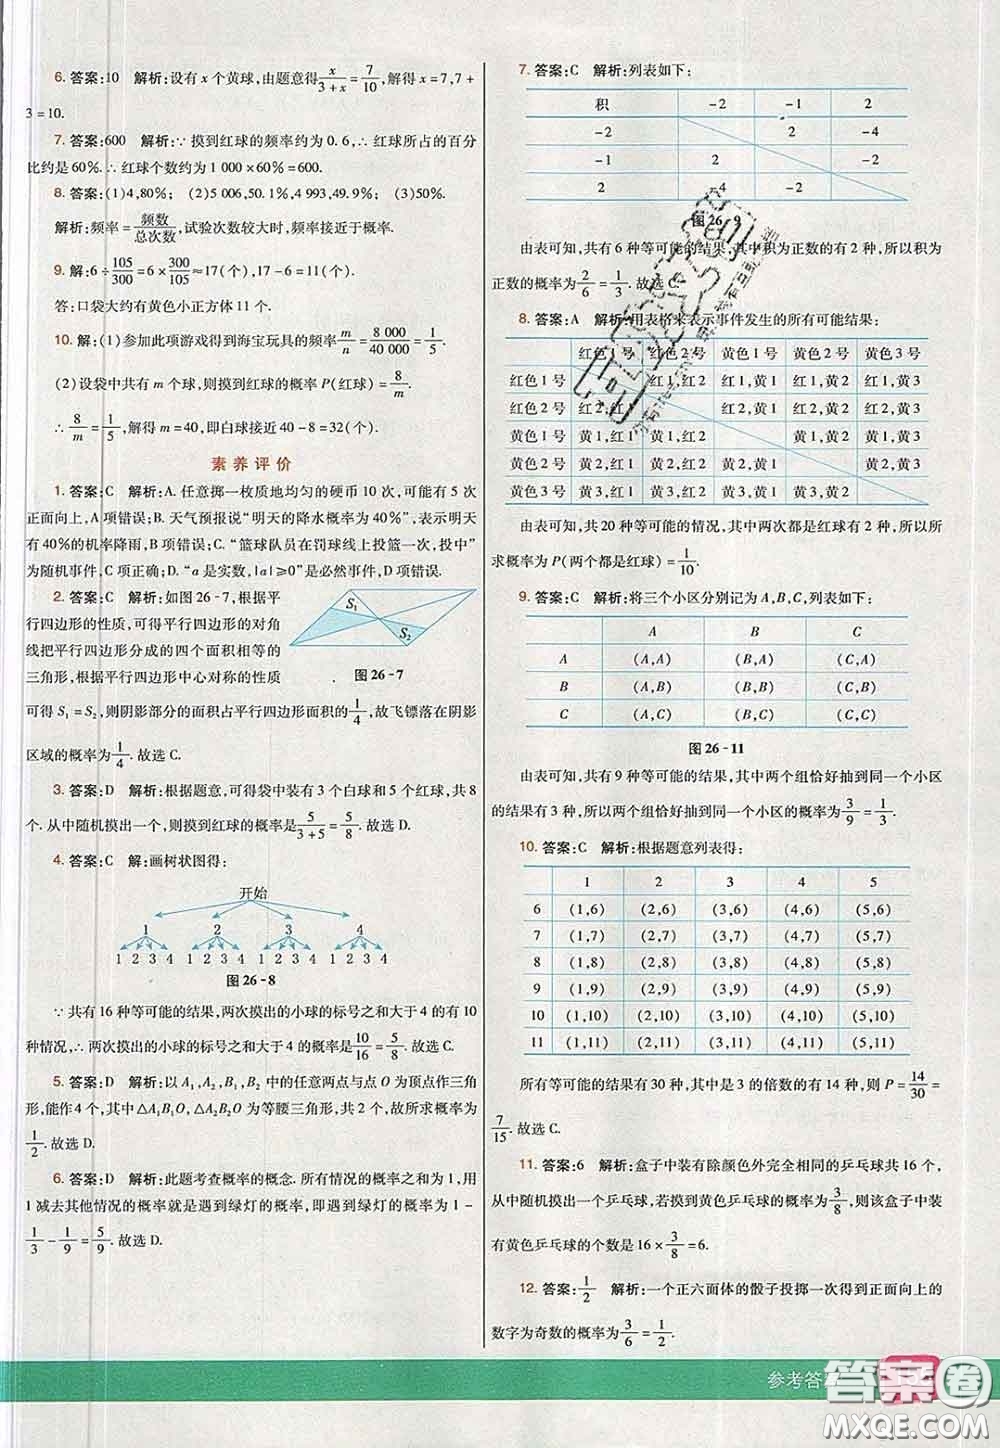 6. 答案:10　解析:设有 x 个黄球,由题意得 x/(3+x) = 7/10, 解得 x=7,7+
3=10.
7. 答案:600　解析:∵ 摸到红球的频率约为 0.6,∴ 红球所占的百分
比约是 60%.∴ 红球个数约为 1 000×60%=600.
8. 答案:(1)4,80%;　(2)5 006,50.1%,4 993,49.9%;　(3)50%.
解析:频率=频数/总次数,试验次数较大时,频率接近于概率.
9. 解:6÷105/300=6×300/105≈17(个),17-6=11(个).
答:口袋大约有黄色小正方体 11 个.
10. 解:(1)参加此项游戏得到海宝玩具的频率 m/n=8 000/40 000=1/5.
(2)设袋中共有 m 个球,则摸到红球的概率 P(红球)=8/m.
∴ 8/m=1/5,解得 m=40,即白球接近 40-8=32(个).
素养评价
1. 答案:C　解析:A. 任意掷一枚质地均匀的硬币 10 次,可能有 5 次
正面向上,A 项错误;B. 天气预报说“明天的降水概率为 40%”,表示明天
有 40%的机率降雨,B 项错误;C.“篮球队员在罚球线上投篮一次,投中”
为随机事件,C 项正确;D.“a 是实数,|a|≥0”是必然事件,D 项错误.
2. 答案:C　解析:如图 26-7,根据平
行四边形的性质,可得平行四边形的对角
线把平行四边形分成的四个面积相等的
三角形,根据平行四边形中心对称的性质
S1
S2
图 26-7
可得 S1=S2,则阴影部分的面积占平行四边形面积的 1/4,故飞镖落在阴影
区域的概率为 1/4. 故选 C.
3. 答案:D　解析:根据题意,可得袋中装有 3 个白球和 5 个红球,共 8
个. 从中随机摸出一个,则摸到红球的概率是 5/(3+5)=5/8. 故选 D.
4. 答案:C　解:画树状图得:
开始
1 2 3 4
1 2 3 4 1 2 3 4 1 2 3 4 1 2 3 4
图 26-8
∵ 共有 16 种等可能的结果,两次摸出的小球的标号之和大于 4 的有 10
种情况,∴ 两次摸出的小球的标号之和大于 4 的概率是 10/16=5/8. 故选 C.
5. 答案:D　解析:以 A1,A2,B1,B2 中的任意两点与点 O 为顶点作三角
形,能作 4 个,其中 △A1B1O,△A2B2O 为等腰三角形,共 2 个,故所求概率为
1/2. 故选 D.
6. 答案:D　解析:此题考查概率的概念. 所有情况的概率之和为 1,用
1 减去其他情况的概率就是遇到绿灯的概率,即遇到绿灯的概率为 1-
1/3-1/9=5/9. 故选 D.
7. 答案:C　解析:列表如下:
积 -2 -1 2
-2 2 -4
-1 2 -2
2 -4 -2
图 26-9
由表可知,共有 6 种等可能的结果,其中积为正数的有 2 种,所以积为
正数的概率为 2/6=1/3. 故选 C.
8. 答案:A　解析:用表格来表示事件发生的所有可能结果:
红色 1 号 红色 2 号 黄色 1 号 黄色 2 号 黄色 3 号
红色 1 号 红1,红2 红1,黄1 红1,黄2 红1,黄3
红色 2 号 红2,红1 红2,黄1 红2,黄2 红2,黄3
黄色 1 号 黄1,红1 黄1,红2 黄1,黄2 黄1,黄3
黄色 2 号 黄2,红1 黄2,红2 黄2,黄1 黄2,黄3
黄色 3 号 黄3,红1 黄3,红2 黄3,黄1 黄3,黄2
由表可知,共 20 种等可能的情况,其中两次都是红球的有 2 种,所以所
求概率为 P(两个都是红球)=1/10.
9. 答案:C　解析:将三个小区分别记为 A,B,C,列表如下:
A B C
A (A,A) (B,A) (C,A)
B (A,B) (B,B) (C,B)
C (A,C) (B,C) (C,C)
图 26-11
由表可知,共有 9 种等可能的结果,其中两个组恰好抽到同一个小区
的结果有 3 种,所以两个组恰好抽到同一个小区的概率为 3/9=1/3. 故选 C.
10. 答案:C　解析:根据题意列表得:
1 2 3 4 5
6 (1,6) (2,6) (3,6) (4,6) (5,6)
7 (1,7) (2,7) (3,7) (4,7) (5,7)
8 (1,8) (2,8) (3,8) (4,8) (5,8)
9 (1,9) (2,9) (3,9) (4,9) (5,9)
10 (1,10) (2,10) (3,10) (4,10) (5,10)
11 (1,11) (2,11) (3,11) (4,11) (5,11)
所有等可能的结果有 30 种,其中是 3 的倍数的有 14 种,则 P=14/30=
7/15. 故选 C.
11. 答案:6　解析:盒子中装有除颜色外完全相同的乒乓球共 16 个,
从中随机摸出一个乒乓球,若摸到黄色乒乓球的概率为 3/8,则该盒子中装
有黄色乒乓球的个数是 16×3/8=6.
12. 答案:1/2　解析:一个正六面体的骰子投掷一次得到正面向上的
数字为奇数的概率为 3/6=1/2.
参考答
答案圈
MXQE.COM